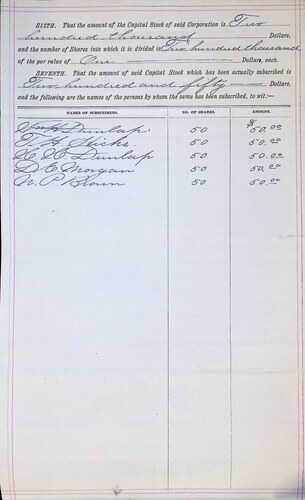 SIXTH. That the amount of the Capital Stock of said Corporation is Two
hundred thousand Dollars,
and the number of Shares into which it is divided is Two hundred thousand
of the par value of One Dollars, each.
SEVENTH. That the amount of said Capital Stock which has been actually subscribed is
Two hundred and fifty Dollars,
and the following are the names of the persons by whom the same has been subscribed, to wit:—
NAMES OF SUBSCRIBERS. NO. OF SHARES. AMOUNT.
Dunlap 50 $50.00
F. H. Hicks. 50 50.00
Dunlap 50 50.00
D. E. Morgan 50 50.00
N. P. Brown 50 50.00